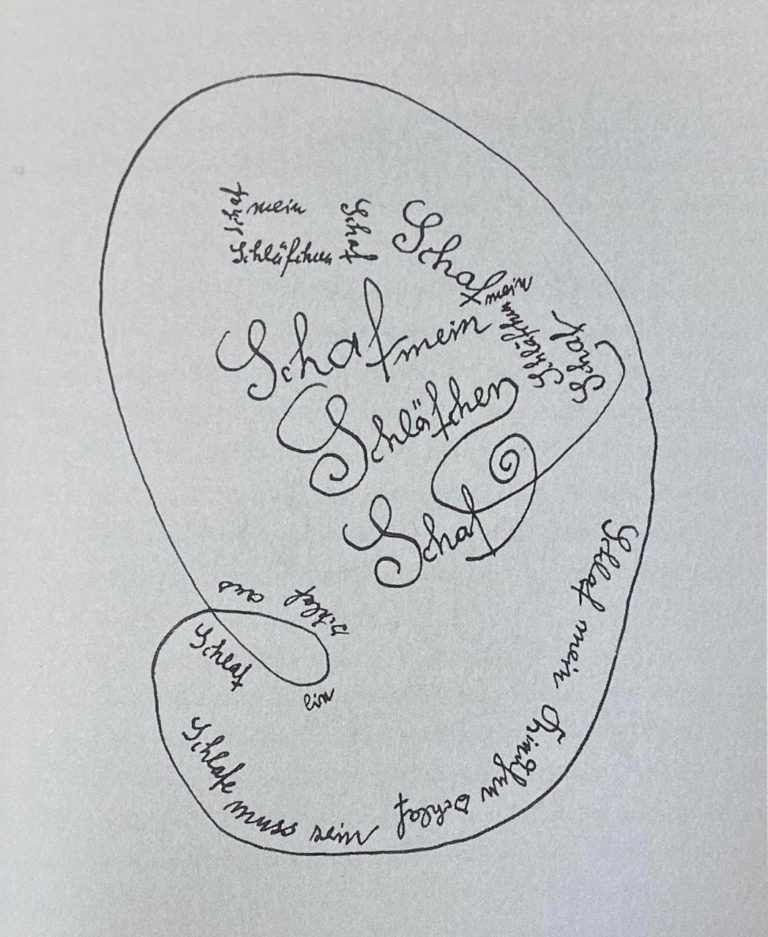 Schaf
mein
Schläfchen
Schaf
Schaf
mein
Schläfchen
Schaf
Schaf mein
Schläfchen
Schaf
Schlaf
aus
Schlaf
ein
Schlafe muss sein
Schlaf mein Kindchen schlaf